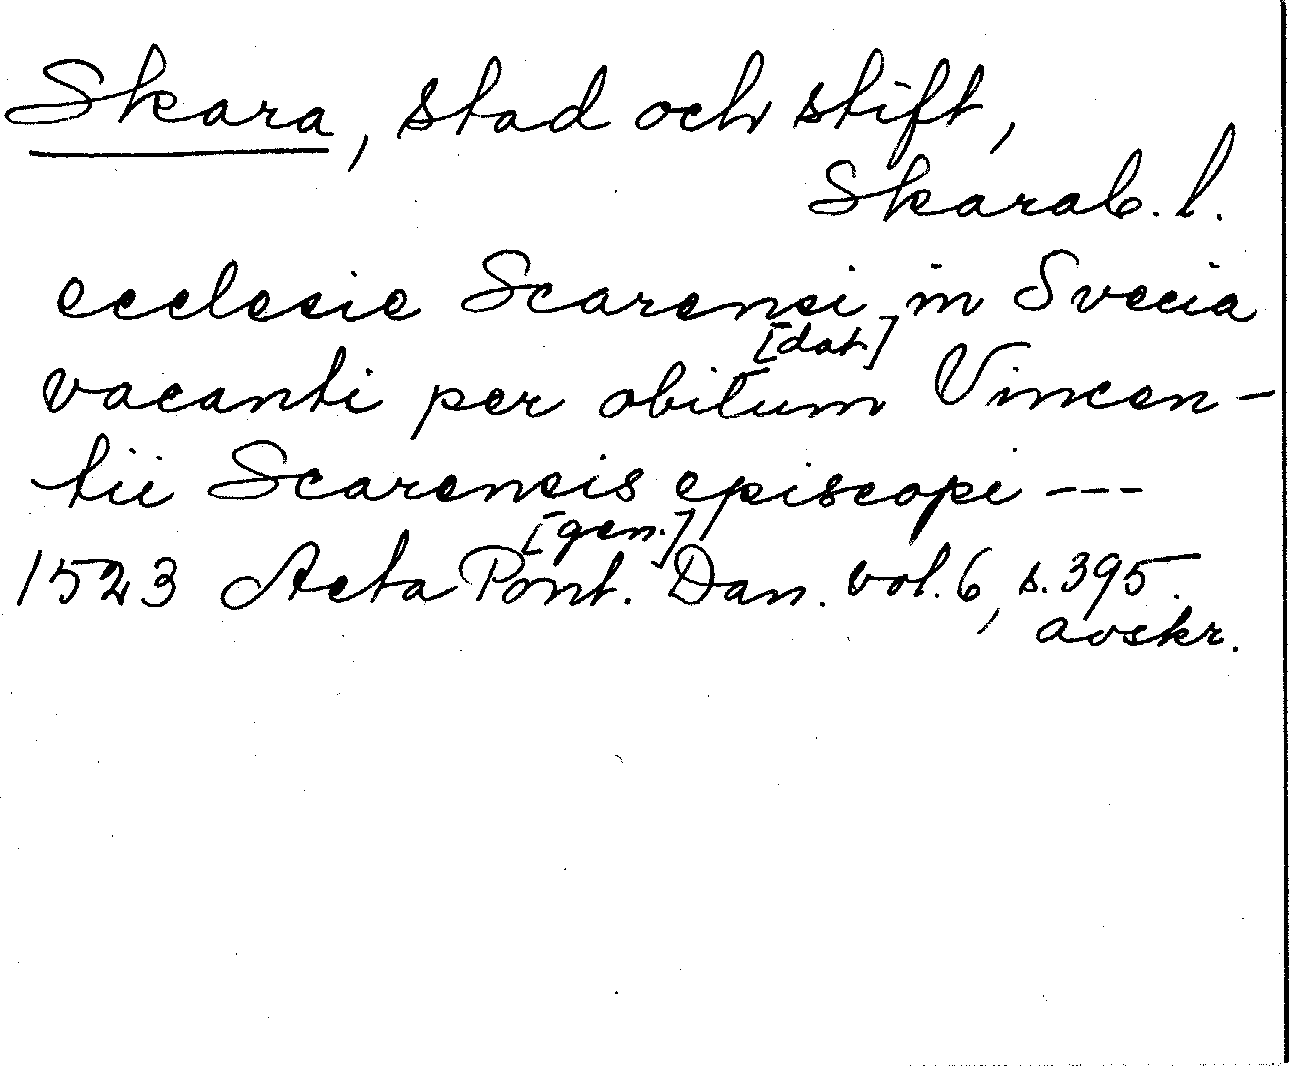 Skara, stad och stift,
Skarab. l.
ecclesie Scarensi in Svecia
[dat.]
vacanti per obitum Vincen-
tii Scarensis episcopi ---
[gen.]
1523 Acta Pont. Dan. vol. 6, s. 395.
avskr.